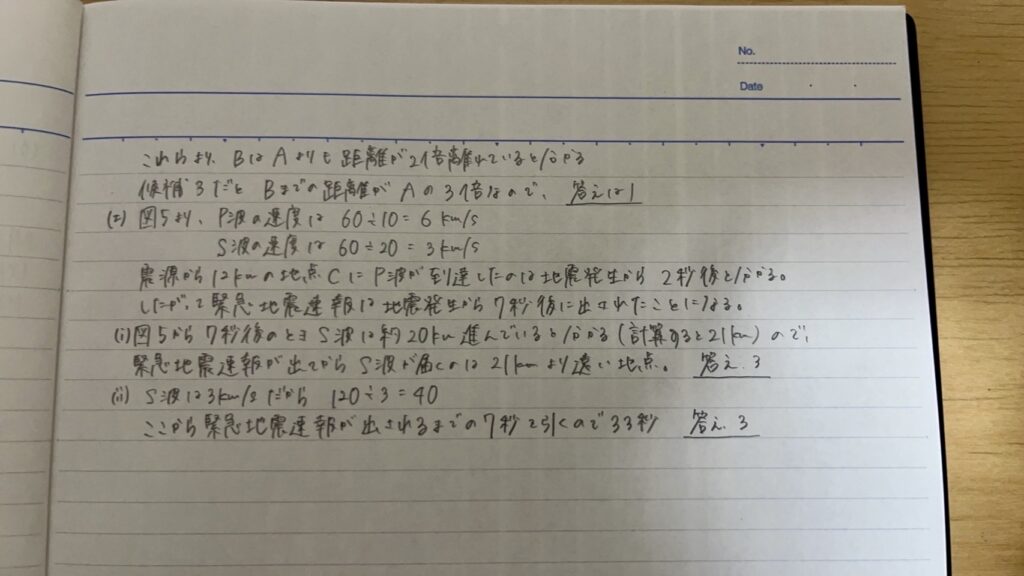 No.
Date
これらより、BはAよりも距離が2倍離れていると分かる
候補3だとBまでの距離がAの3倍なので、答えは1
(エ) 図5より、P波の速度は 60÷10=6 km/s
S波の速度は 60÷20=3km/s
震源から12kmの地点CにP波が到達したのは地震発生から2秒後と分かる。
したがって緊急地震速報は地震発生から7秒後に出されたことになる。
(i)図5から7秒後のときS波は約20km進んでいると分かる(計算すると21km)ので、
緊急地震速報が出てからS波が届くのは21kmより遠い地点。 答え.3
(ii) S波は3km/sだから 120÷3=40
ここから緊急地震速報が出されるまでの7秒を引くので33秒 答え.3